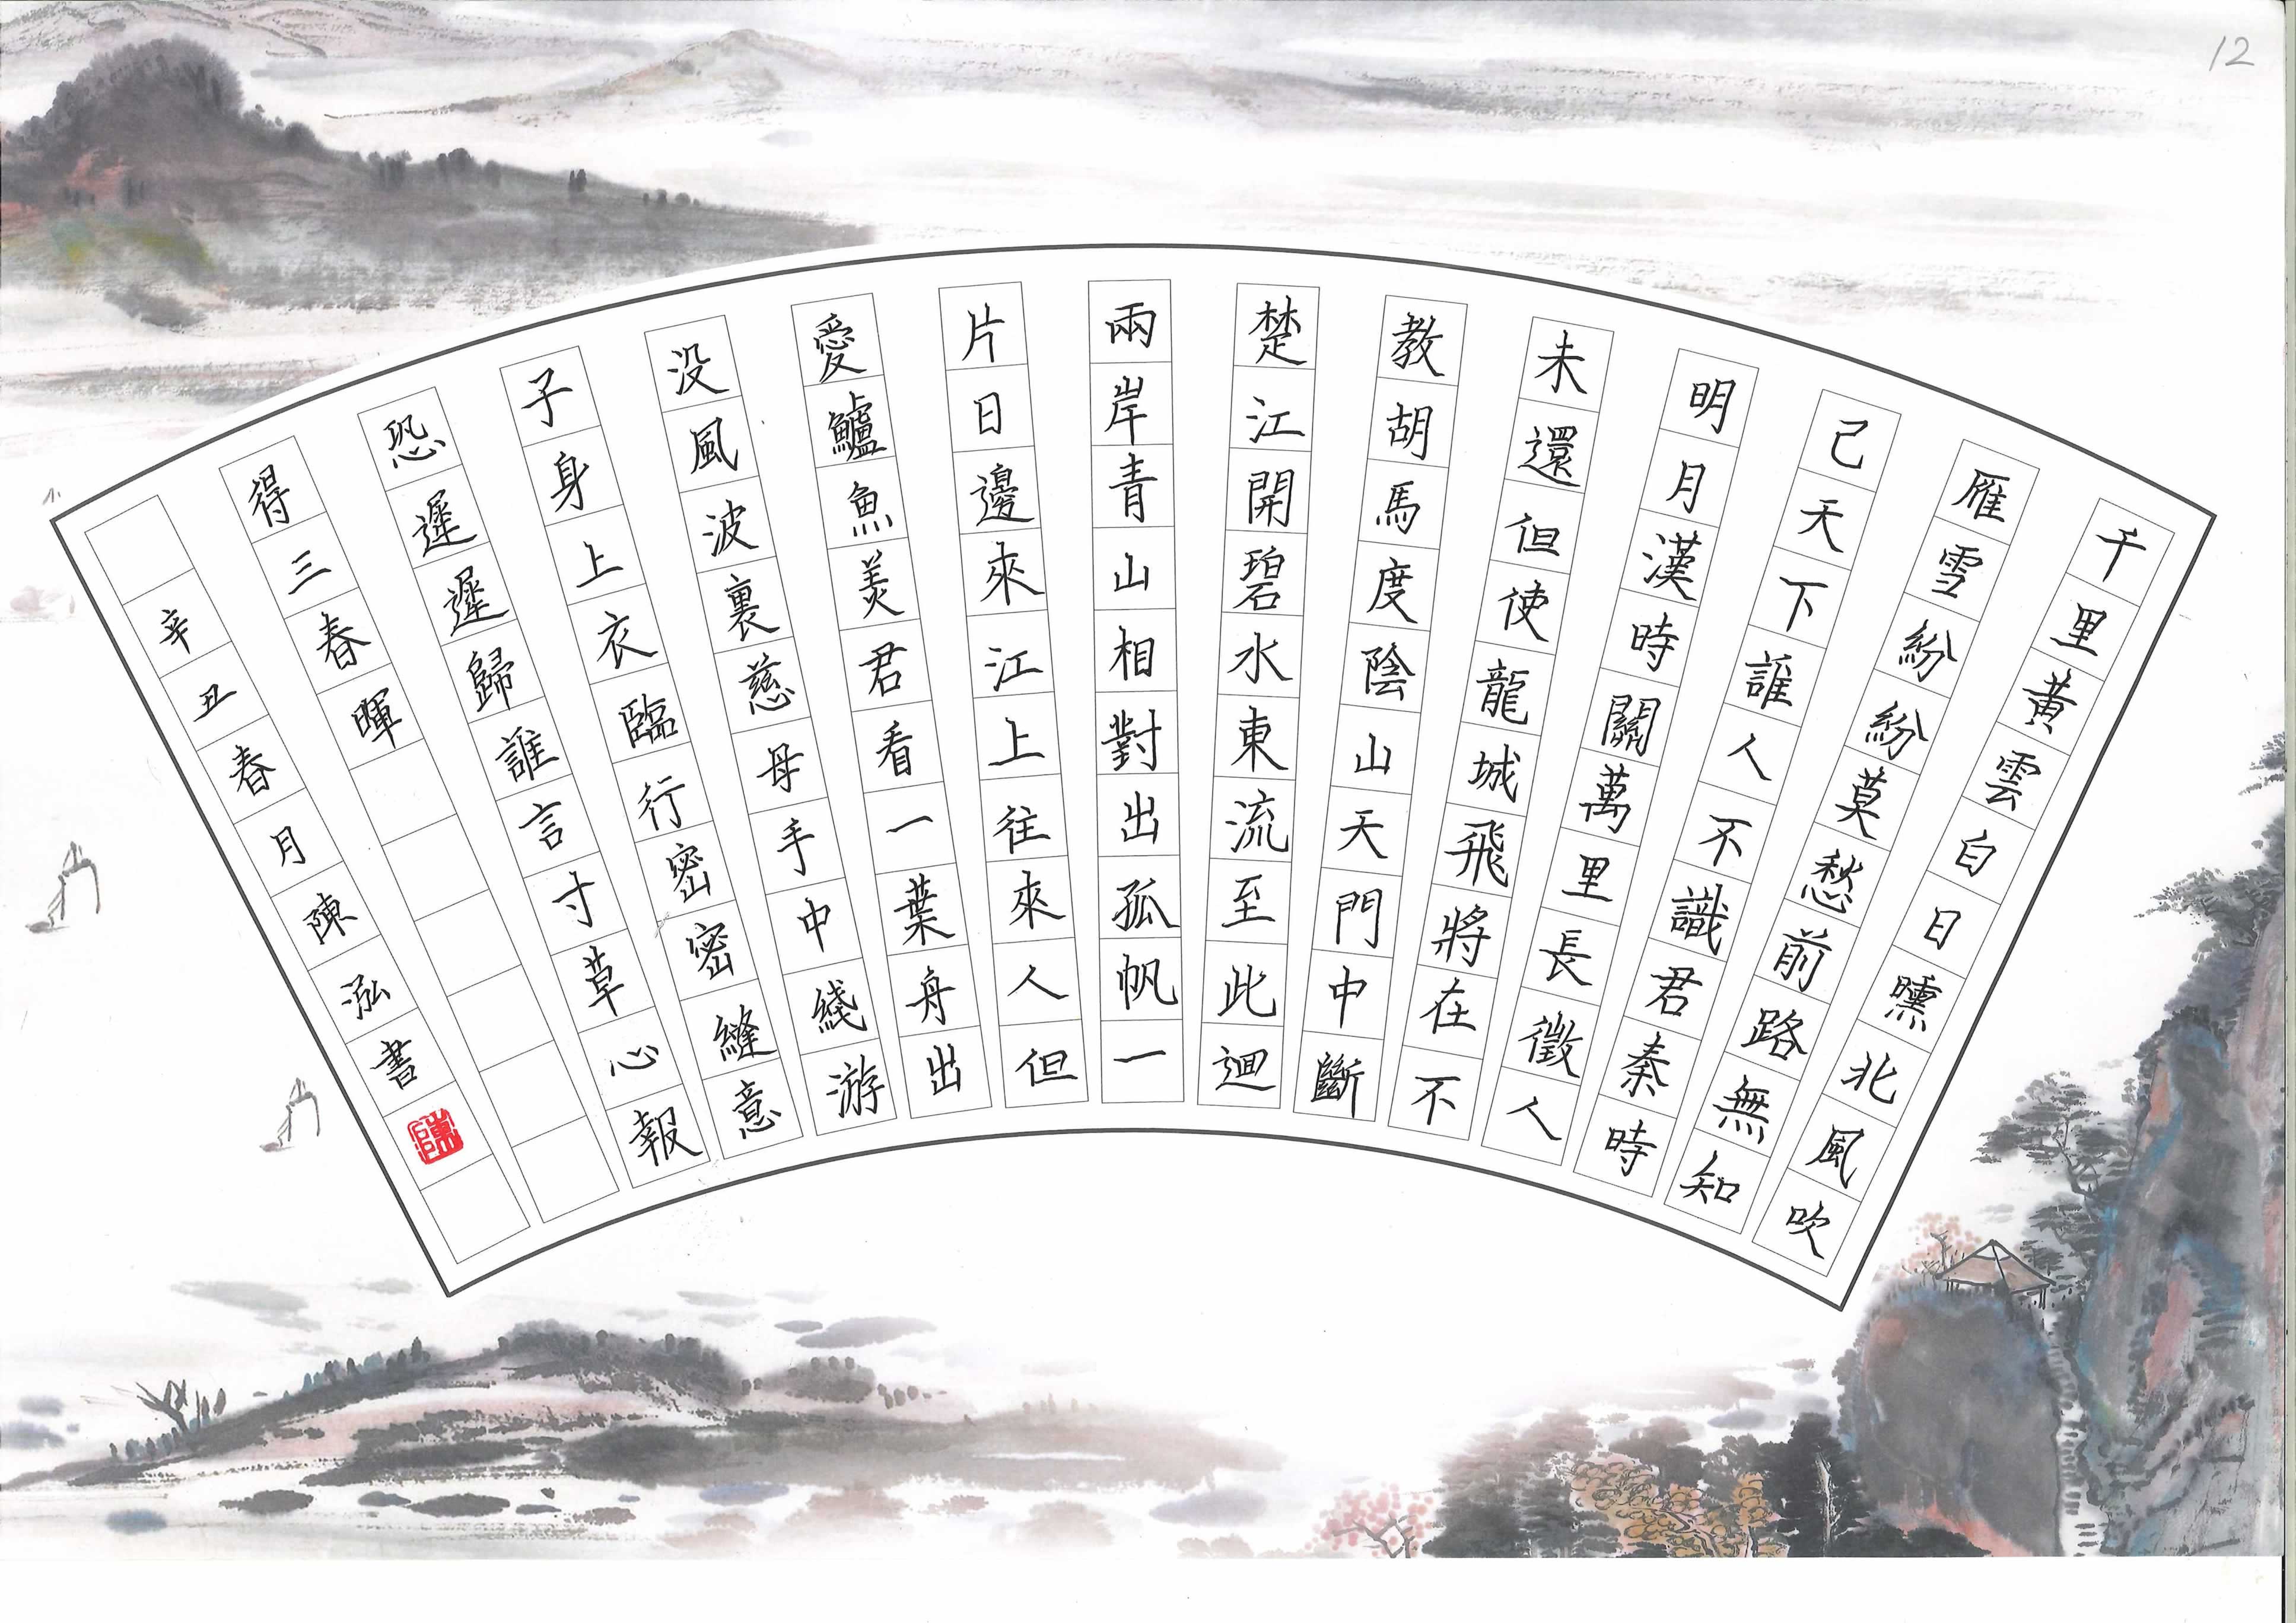 12
千里黃雲白日曛北風吹
雁雪紛紛莫愁前路無知
己天下誰人不識君秦時
明月漢時關萬里長徵人
未還但使龍城飛將在不
教胡馬度陰山天門中斷
楚江開碧水東流至此迴
兩岸青山相對出孤帆一
片日邊來江上往來人但
愛鱸魚美君看一葉舟出
没風波裏慈母手中綫游
子身上衣臨行密密縫意
恐遲遲歸誰言寸草心報
得三春暉
辛丑春月陳泓書
陳